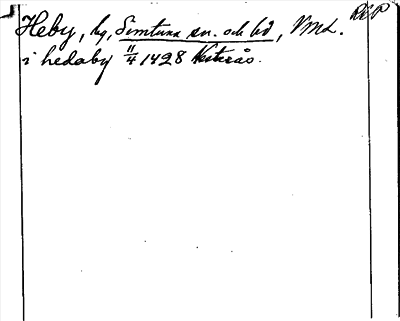 RAP
Heby, by, Simtuna sn. och hd, Vml.
i hedaby 11/4 1428 Västerås.